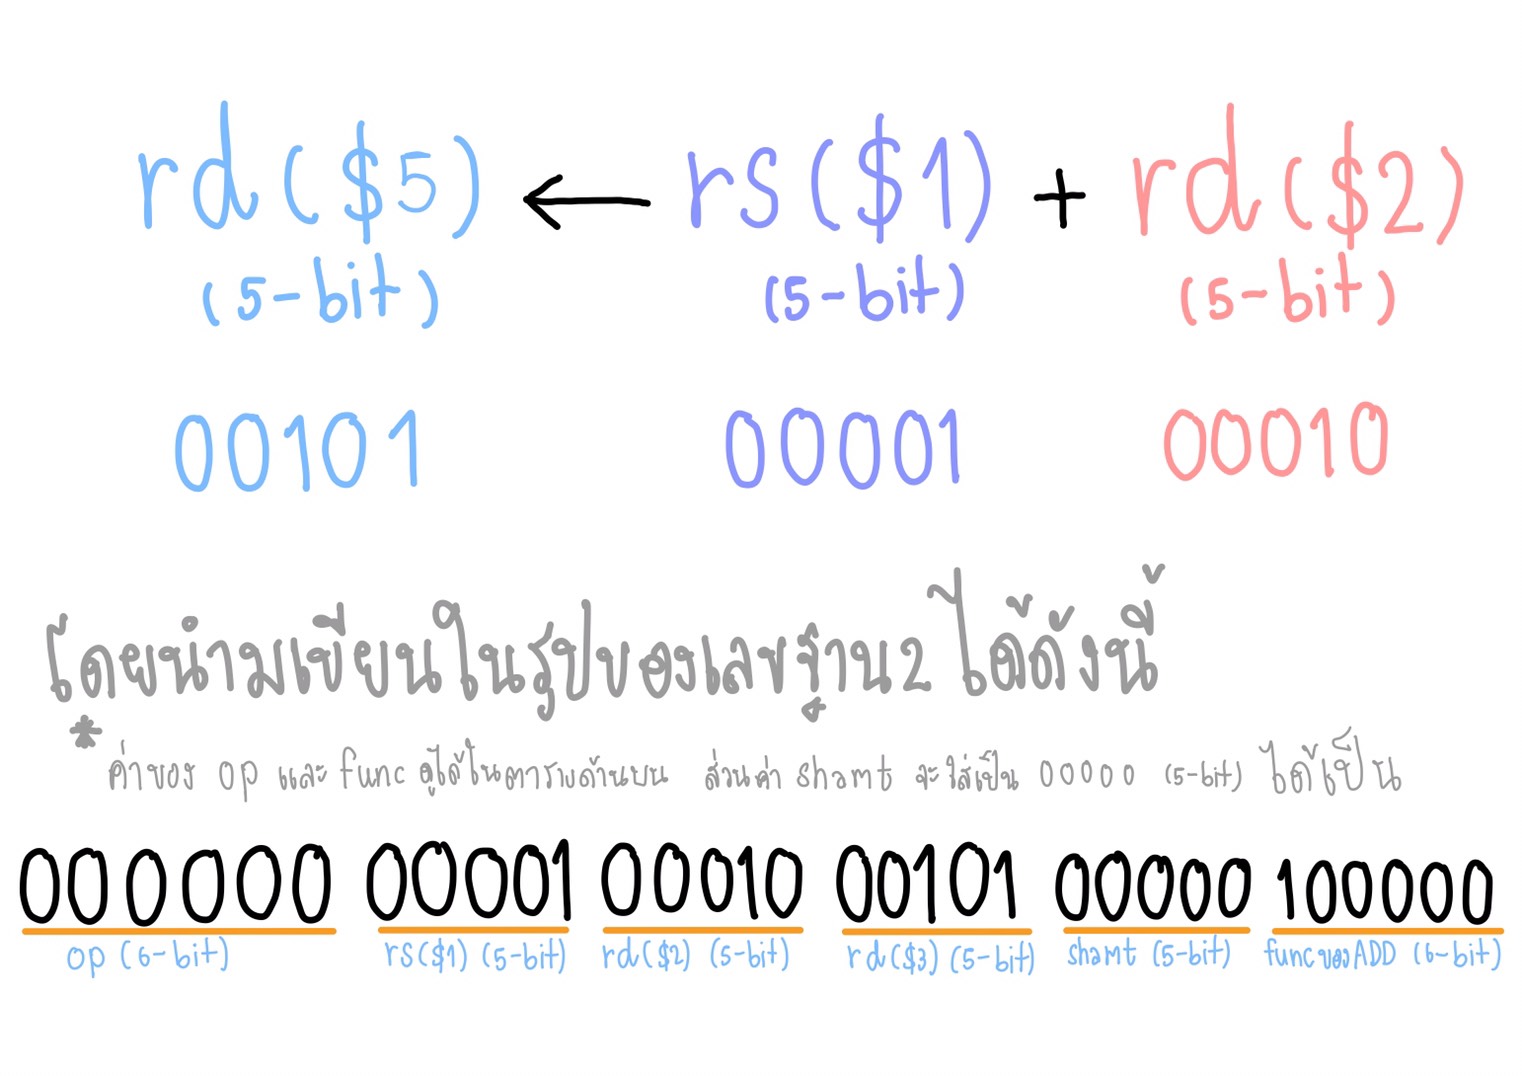 rd($5) ← rs($1) + rd($2)
(5-bit) (5-bit) (5-bit)
00101 00001 00010
โดยนำมเขียนในรูปของเลขฐาน2 ได้ดังนี้
* ค่าของ op และ func ดูได้ในตารางด้านบน ส่วนค่า shamt จะใส่เป็น 00000 (5-bit) ได้เป็น
000000 00001 00010 00101 00000 100000
op (6-bit) rs($1) (5-bit) rd($2) (5-bit) rd($3) (5-bit) shamt (5-bit) funcของADD (6-bit)